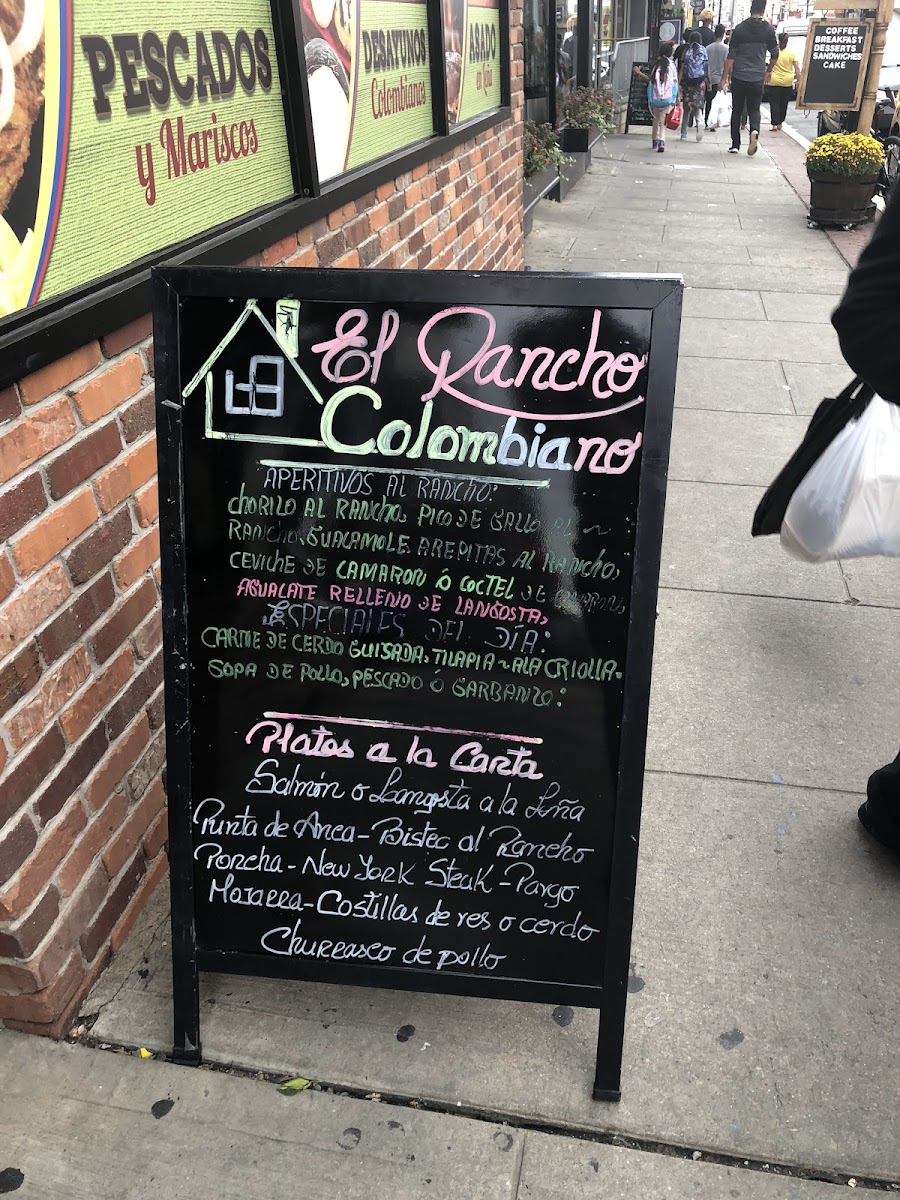 PESCADOS
y Mariscos
DESAYUNOS
Colombianos
ASADO
COFFEE
BREAKFAST
DESSERTS
SANDWICHES
CAKE
El Rancho
Colombiano
APERITIVOS AL RANCHO:
CHORILO AL RANCHO, PICO DE GALLO AL ~
RANCHO, GUACAMOLE, AREPITAS AL RANCHO,
CEVICHE DE CAMARON Ó COCTEL DE
AGUACATE RELLENO DE LANGOSTA,
ESPECIALES DEL DÍA:
CARNE DE CERDO GUISADA, TILAPIA ~ ALA CRIOLLA.
SOPA DE POLLO, PESCADO Ó GARBANZO:
Platos a la Carta
Salmón o Langosta a la Leña
Punta de Anca - Bistec al Rancho
Porcha - New York Steak - Pargo
Mojarra - Costillas de res o cerdo
Churrasco de pollo